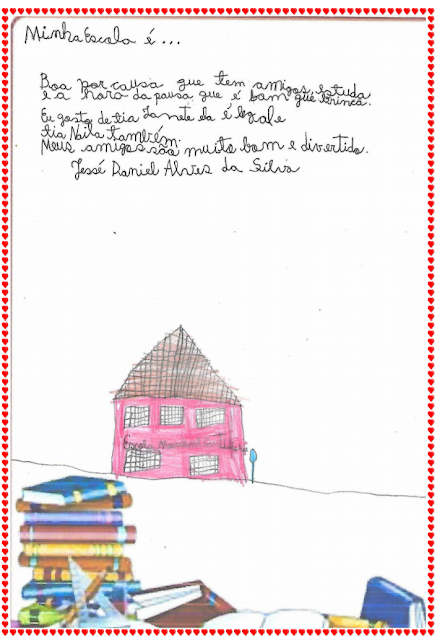 Minha Escola é...
Boa por causa que tem amigos, estuda
e a hora da pausa que é bom que brinca.
Eu gosto de tia Janete ela é legal e
tia Naila também.
Meus amigos são muito bom e divertido.
Jessé Daniel Alves da Silva
Escola Municipal